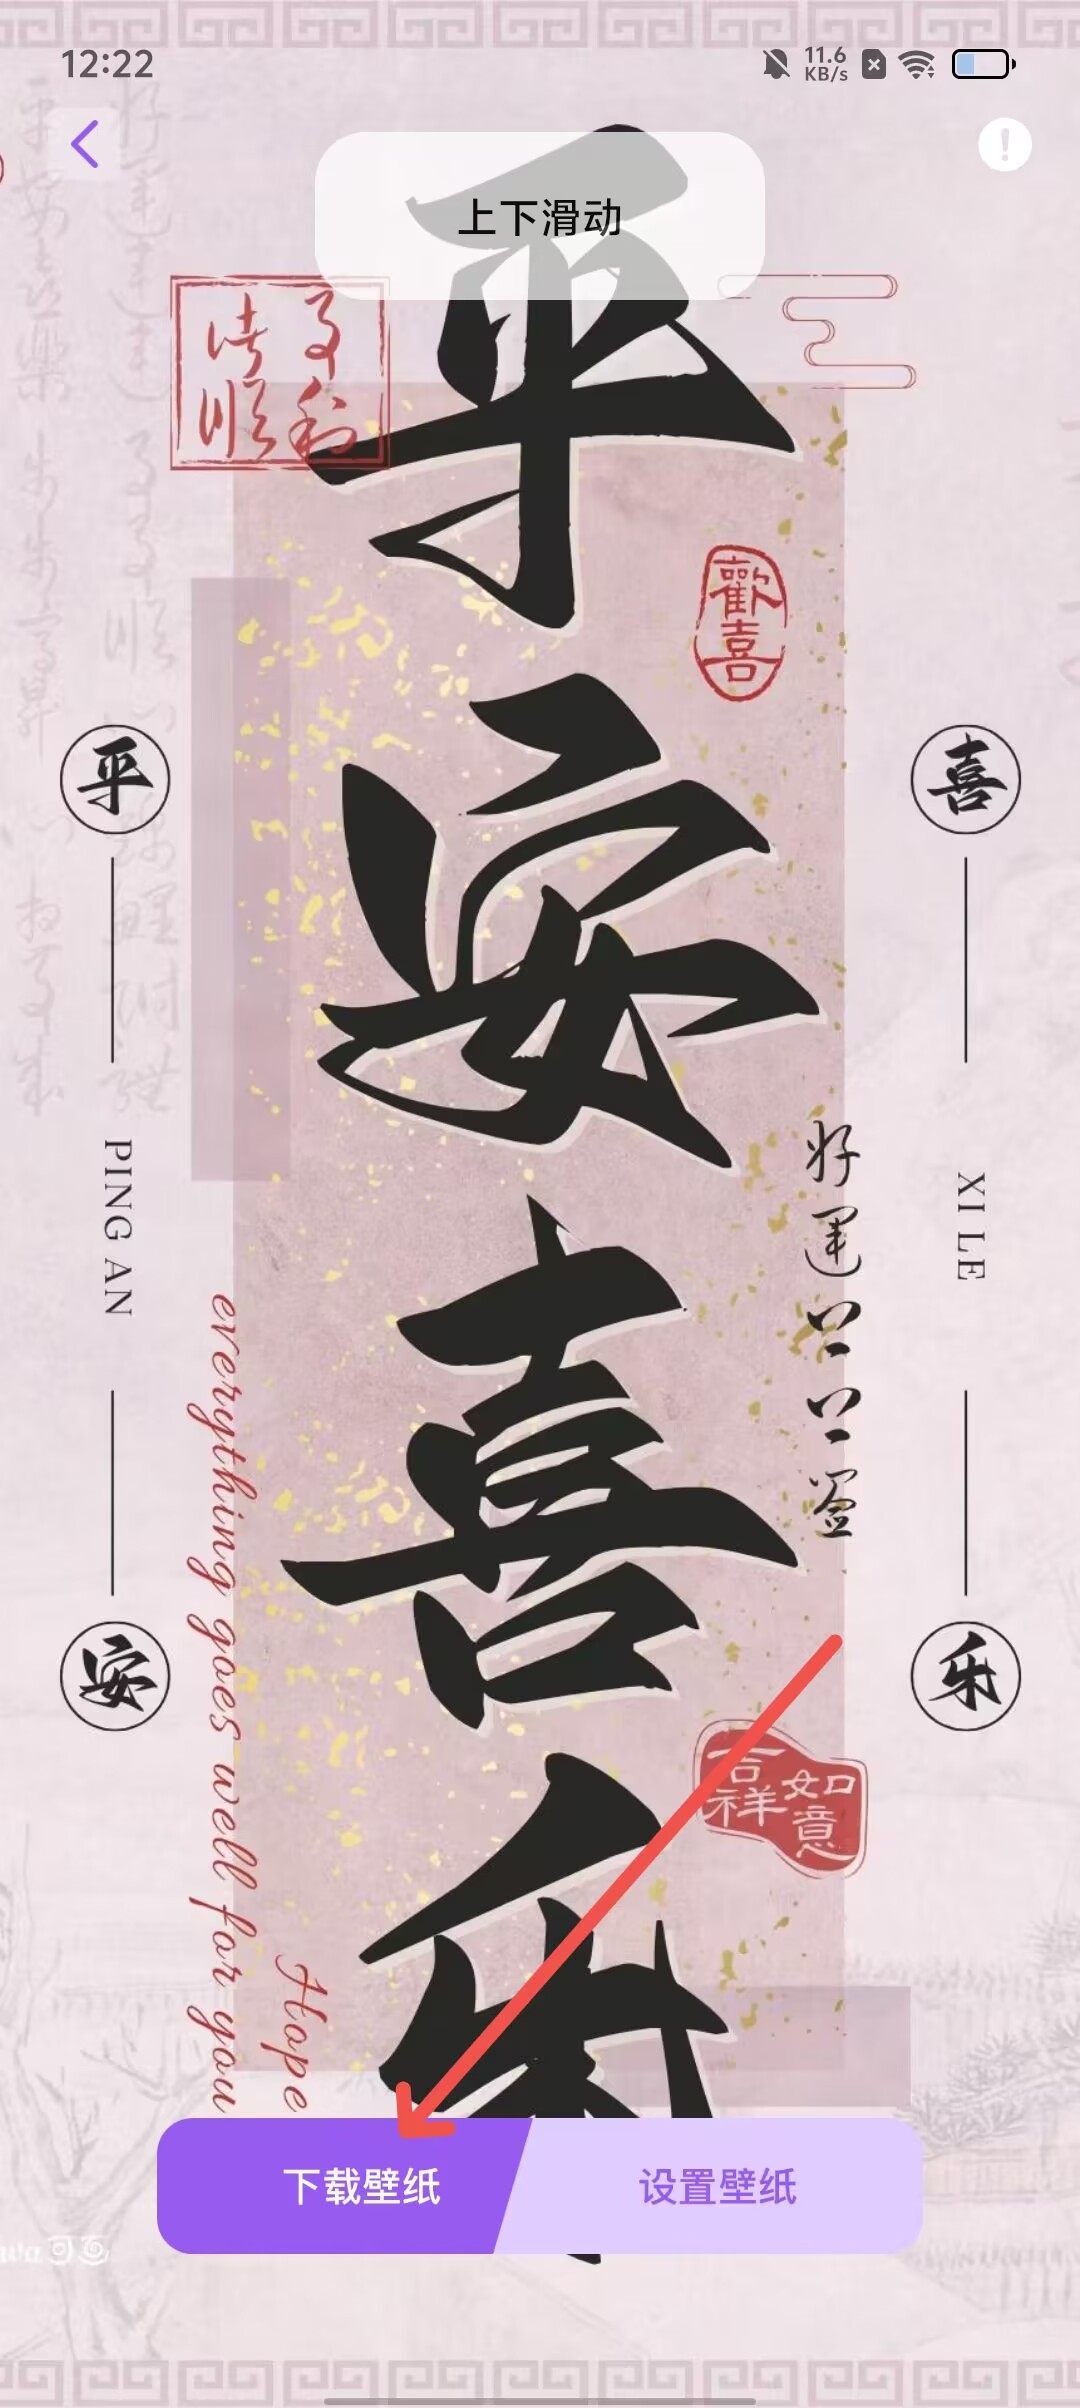 12:22
11.6
KB/s
上下滑动
平安喜乐
诸事
顺利
歡喜
平
安
PING AN
喜
乐
XI LE
好运上上签
吉祥
如意
everything goes well for you
Hope
下载壁纸
设置壁纸